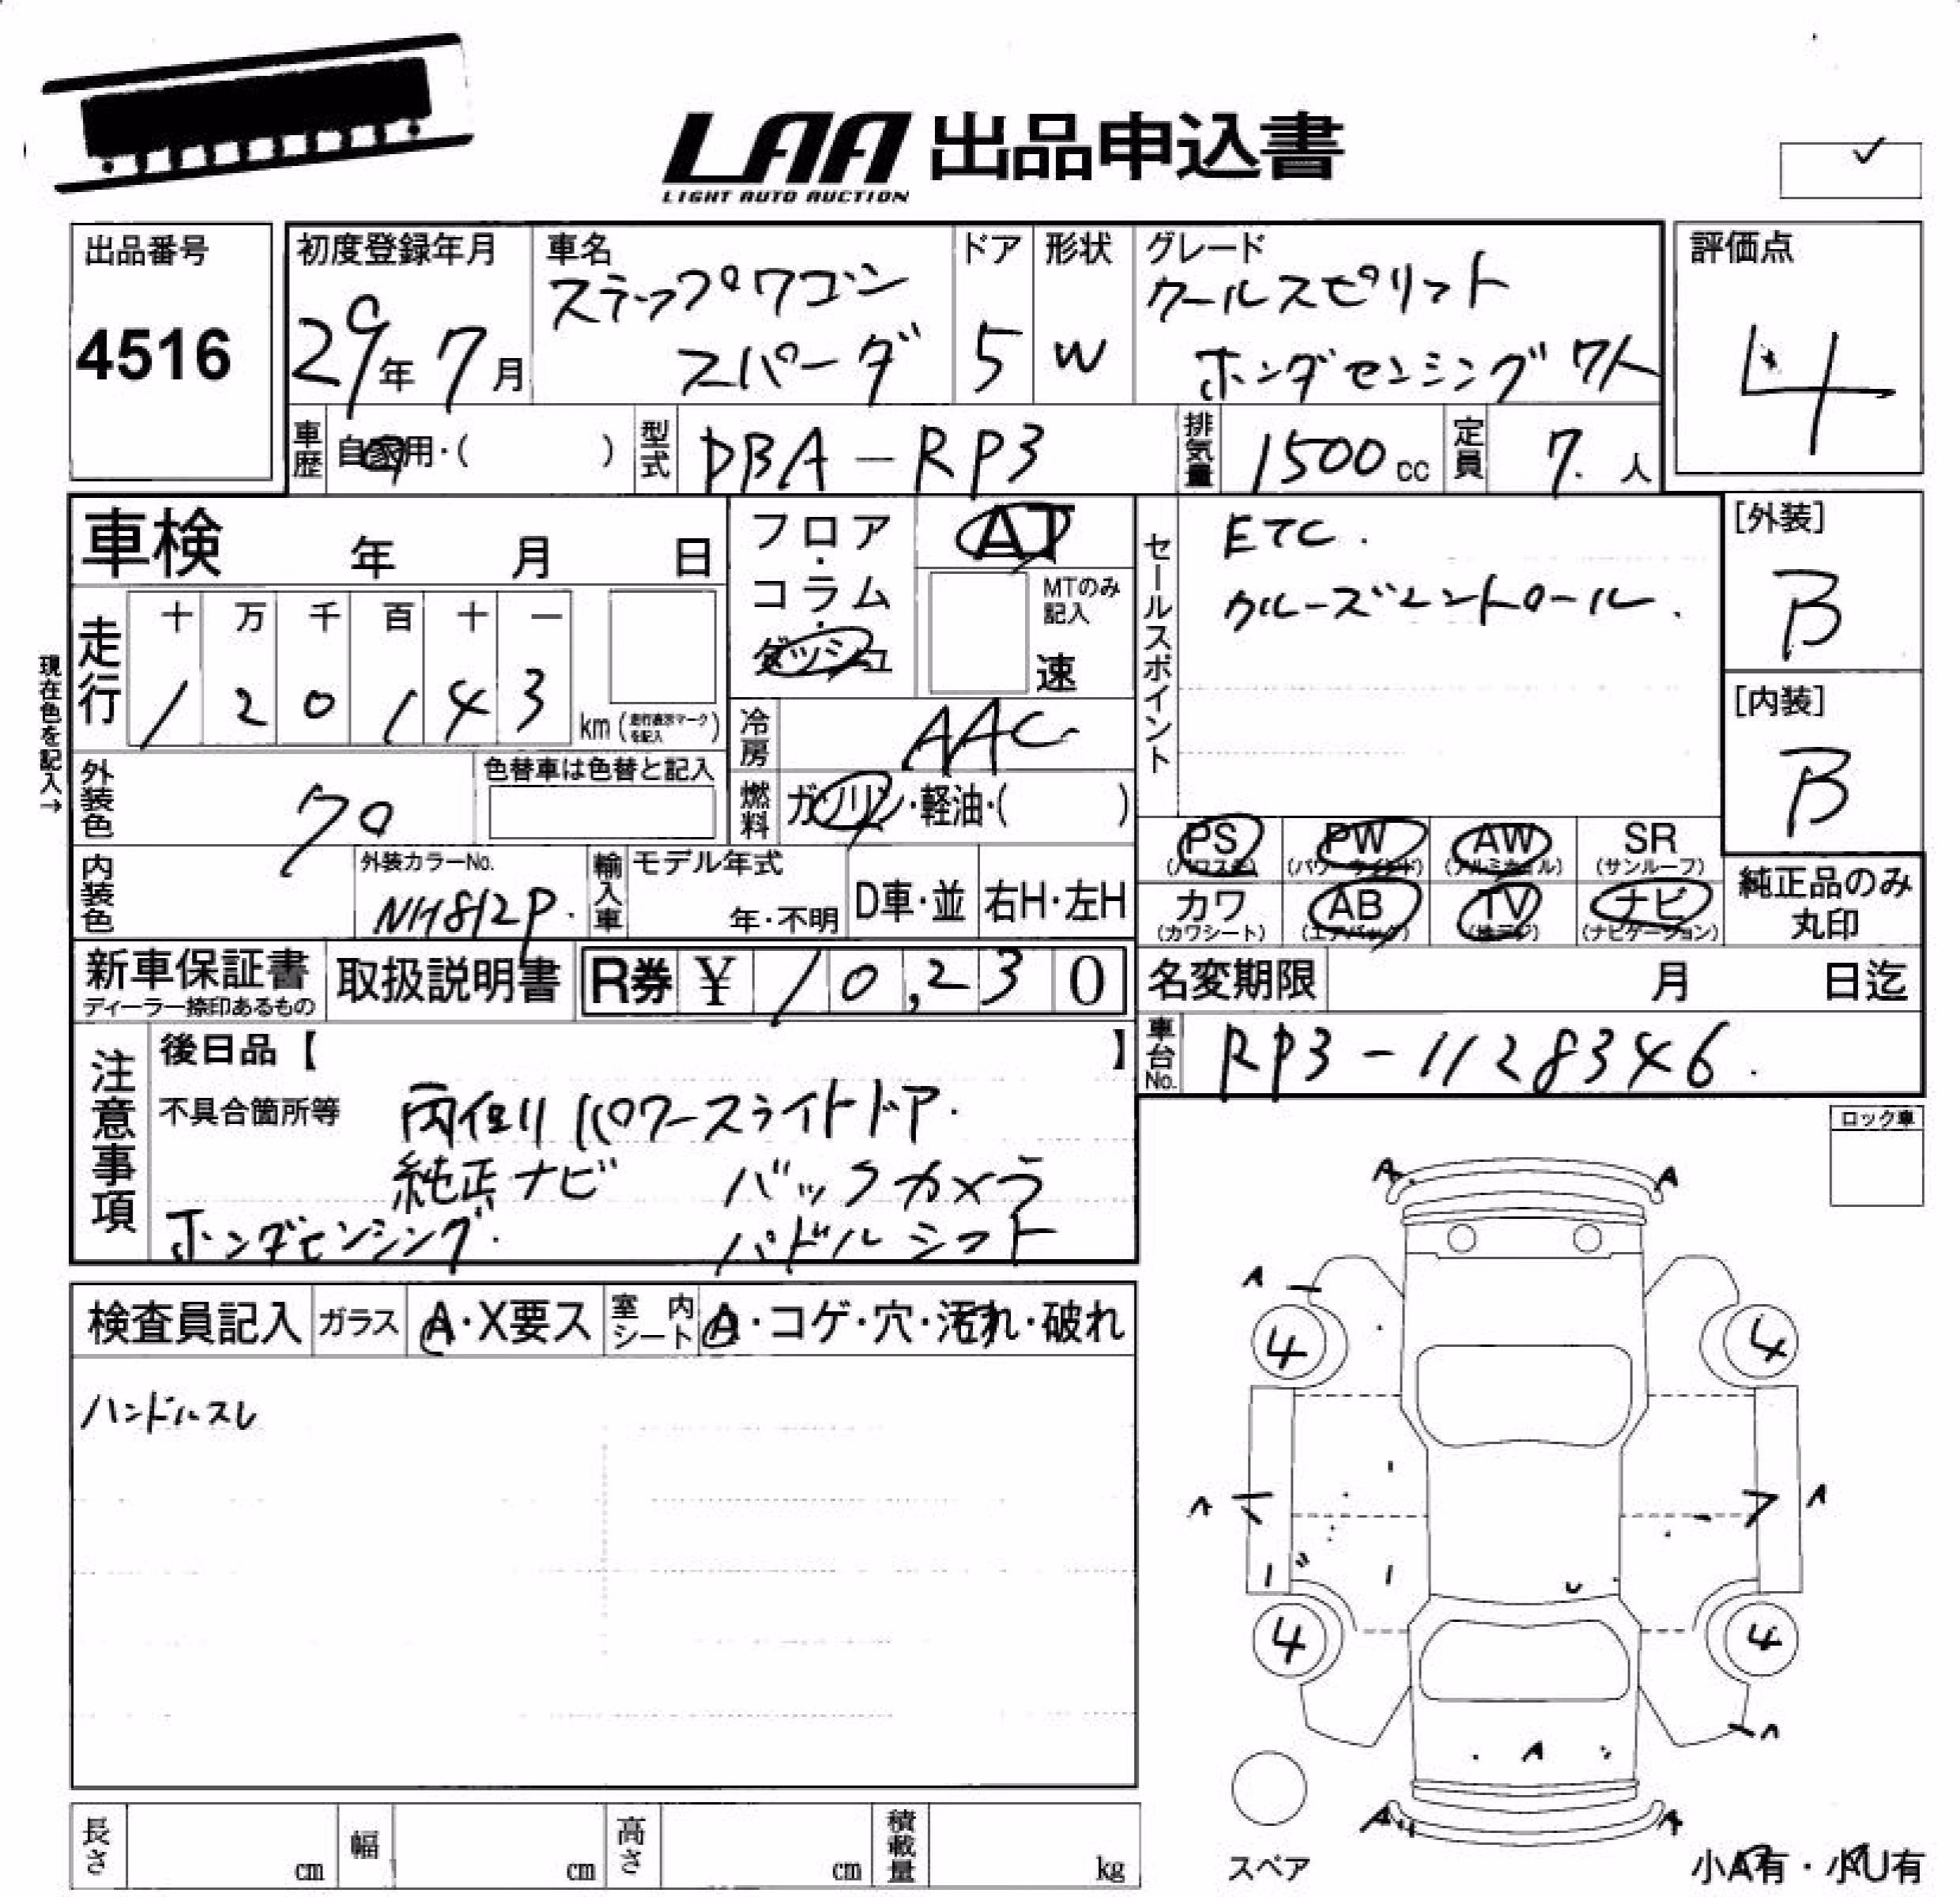 LAA 出品申込書
LIGHT AUTO AUCTION
出品番号
4516
初度登録年月
29年 7月
車名
ステップワゴン
スパーダ
ドア
5
形状
W
グレード
クールスピリット
ホンダセンシング 7人
評価点
4
車歴
自家用・( )
型式
DBA-RP3
排気量
1500 cc
定員
7. 人
車検 年 月 日
現在色を記入→
走行
十 万 千 百 十 一
1 2 0 1 4 3
km (走行表示マークを記入)
フロア・コラム・ダッシュ
AT
MTのみ記入
速
冷房
AAC
燃料
ガソリン・軽油・( )
セールスポイント
ETC.
クルーズコントロール.
[外装]
B
[内装]
B
外装色
クロ
色替車は色替と記入
内装色
外装カラーNo.
NH812P.
輸入車
モデル年式
年・不明
D車・並
右H・左H
PS
(パワステ)
PW
(パワーウインド)
AW
(アルミホイル)
SR
(サンルーフ)
カワ
(カワシート)
AB
(エアバック)
TV
(地デジ)
ナビ
(ナビゲーション)
純正品のみ
丸印
新車保証書
ディーラー捺印あるもの
取扱説明書
R券 ¥ 10,230
名変期限 月 日迄
車台No.
RP3-1128346.
注意事項
後日品【 】
不具合箇所等
両側パワースライドドア.
純正ナビ バックカメラ
ホンダセンシング. パドルシフト
ロック車
検査員記入
ガラス
A・X要ス
室内シート
A・コゲ・穴・汚れ・破れ
ハンドルスレ
A A
A
4 4
A A
4 4
A
A
A A
スペア
小A有・小U有
長さ cm
幅 cm
高さ cm
積載量 kg